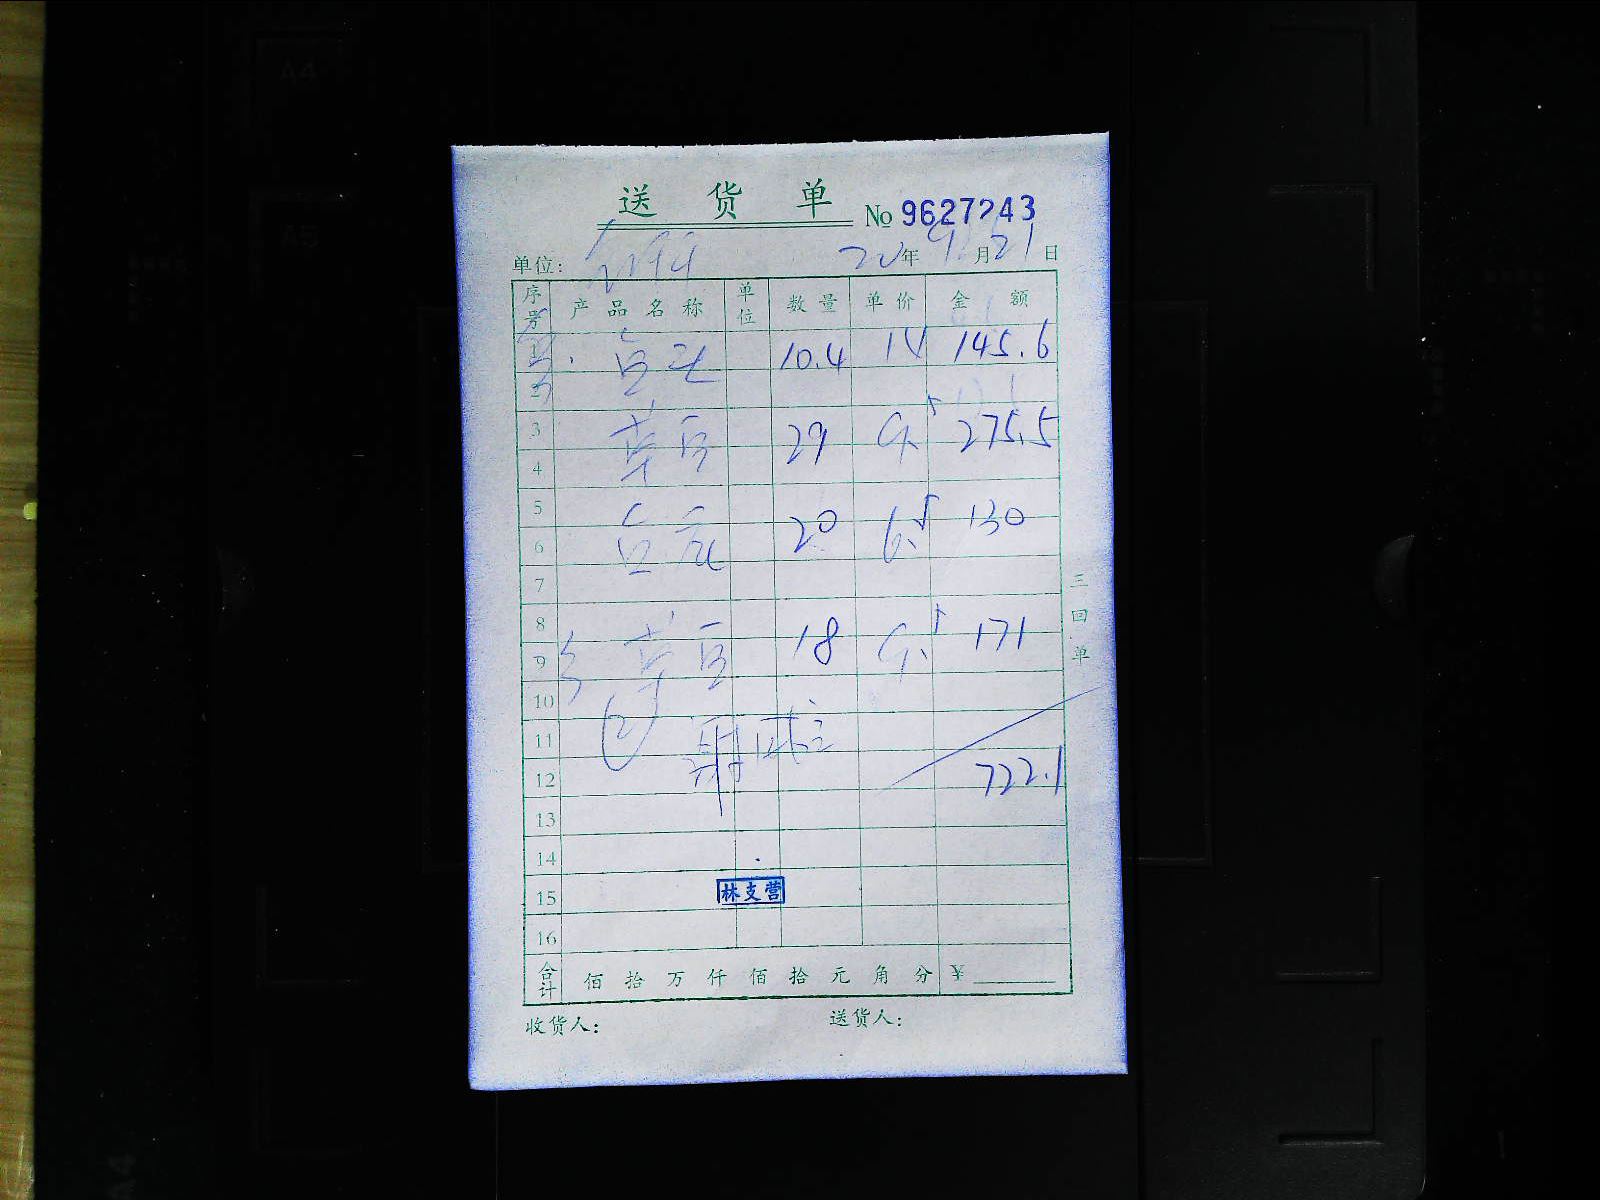 送 货 单 No 9627243
单位: 20年9月21日
序号 产品名称 单位 数量 单价 金额
10.4 14 145.6
2
3 草豆 29 9.5 275.5
4
5
6 20 6.5 130
7
8
9 草豆 18 9.5 171
10
11
12 722.1
13
14
15 林支营
16
合计 佰 拾 万 仟 佰 拾 元 角 分 ¥
收货人: 送货人:
三回单
A4
A5